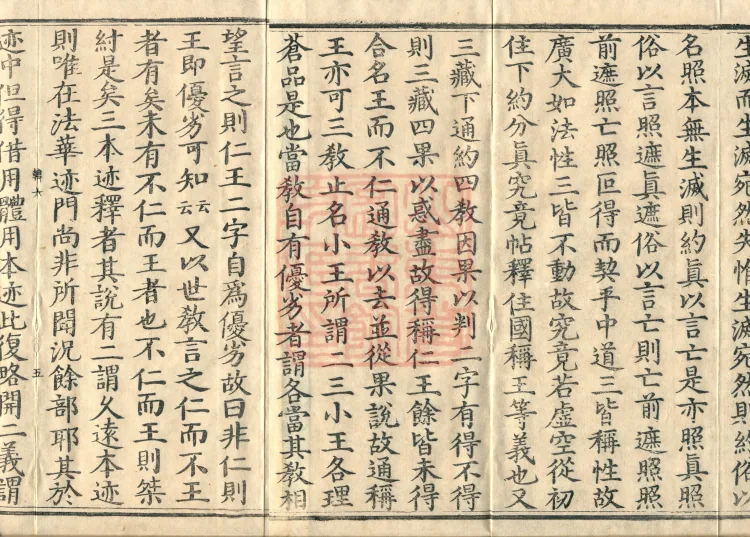 生滅而生滅宛然先惟生滅宛然則約俗以
名照本無生滅則約眞以言亡是亦照眞照
俗以言照遮眞遮俗以言亡則亡前遮照照
前遮照亡照叵得而契乎中道三皆稱性故
廣大如法性三皆不動故究竟若虛空從初
住下約分眞究竟帖釋住國稱王等義也又
三藏下通約四教因果以判二字有得不得
則三藏四果以惑盡故得稱仁王餘皆未得
合名王而不仁通教以去並從果說故通稱
王亦可三教止名小王所謂二三小王各理
蒼品是也當教自有優劣者謂各當其教相
望言之則仁王二字自爲優劣故曰非仁則
王即優劣可知云云又以世教言之仁而不王
者有矣未有不仁而王者也不仁而王則桀
紂是矣三本迹釋者其說有二謂久遠本迹
則唯在法華迹門尚非所聞況餘部耶其於
迹中但得借用體用本迹此復略開二義謂
五